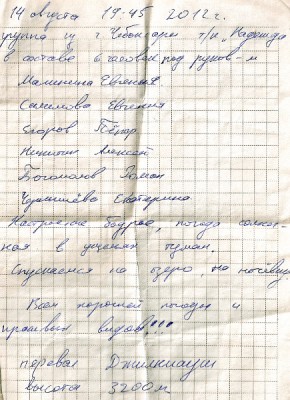 14 августа 19:45 2012г.
группа из г. Чебоксары т/к "Надежда
в составе 6 человек под руков-м
Малинина Евгения.
Евгения
Егоров Пётр
Никитин Алексей
Богомолов Роман
Екатерина
Настроение бодрое, погода солнеч-
ная в ущельях туман.
Спускаемся на озеро, на ночёвку
Всем хорошей погоды и
красивых видов!!!
перевал Джилкиауш
высота 3200м